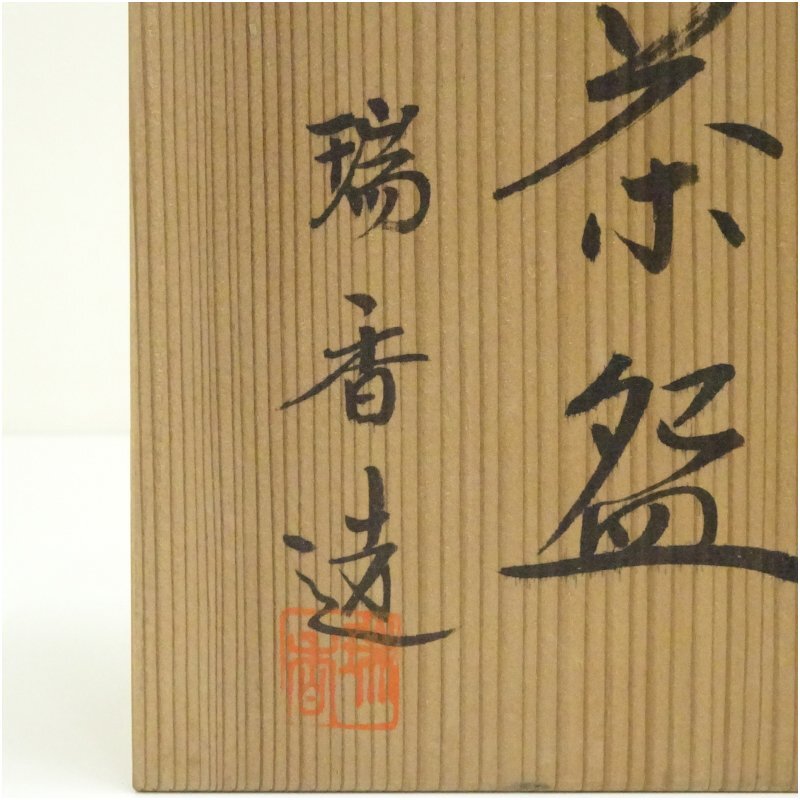 茶盌
瑞香造
瑞香